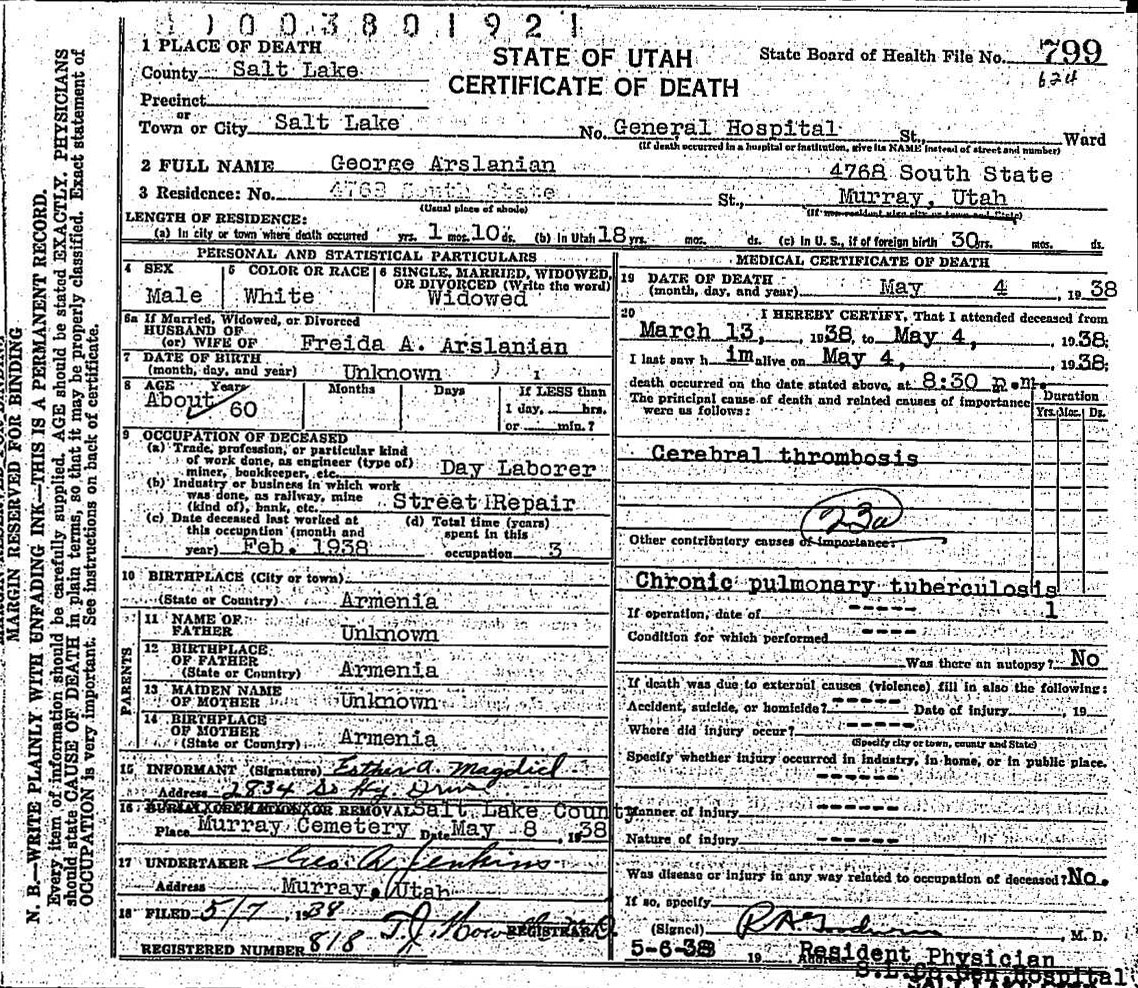 0 1 0 0 3 8 0 1 9 2 1
1 PLACE OF DEATH
County Salt Lake
Precinct
or
Town or City Salt Lake
STATE OF UTAH
CERTIFICATE OF DEATH
State Board of Health File No. 799
624
No. General Hospital St., Ward
(If death occurred in a hospital or institution, give its NAME instead of street and number)
2 FULL NAME George Arslanian
4768 South State
3 Residence: No. 4768 South State St., Murray, Utah
(Usual place of abode) (If non-resident give city or town and State)
LENGTH OF RESIDENCE:
(a) In city or town where death occurred yrs. 1 mos. 10 ds. (b) In Utah 18 yrs. mos. ds. (c) In U. S., if of foreign birth 30 yrs. mos. ds.
PERSONAL AND STATISTICAL PARTICULARS
4 SEX
Male
5 COLOR OR RACE
White
6 SINGLE, MARRIED, WIDOWED, OR DIVORCED (Write the word)
Widowed
6a If Married, Widowed, or Divorced
HUSBAND OF
(or) WIFE OF Freida A. Arslanian
7 DATE OF BIRTH
(month, day, and year) Unknown
8 AGE Years Months Days If LESS than
About 60 1 day, hrs.
or min.?
9 OCCUPATION OF DECEASED
(a) Trade, profession, or particular kind
of work done, as engineer (type of)
miner, bookkeeper, etc. Day Laborer
(b) Industry or business in which work
was done, as railway, mine
(kind of), bank, etc. Street Repair
(c) Date deceased last worked at
this occupation (month and
year) Feb. 1938
(d) Total time (years)
spent in this
occupation 3
10 BIRTHPLACE (City or town)
(State or Country) Armenia
PARENTS
11 NAME OF
FATHER Unknown
12 BIRTHPLACE
OF FATHER
(State or Country) Armenia
13 MAIDEN NAME
OF MOTHER Unknown
14 BIRTHPLACE
OF MOTHER
(State or Country) Armenia
15 INFORMANT (Signature) Esther A. Magdiel
Address 2834 So Hy. Drive
16 BURIAL, CREMATION, OR REMOVAL Salt Lake County
Place Murray Cemetery Date May 8, 1938
17 UNDERTAKER Geo A. Jenkins
Address Murray, Utah
18 FILED 5/7, 1938
REGISTRAR
REGISTERED NUMBER 818
MEDICAL CERTIFICATE OF DEATH
19 DATE OF DEATH
(month, day, and year) May 4, 1938
20 I HEREBY CERTIFY, That I attended deceased from
March 13, 1938, to May 4, 1938;
I last saw him alive on May 4, 1938;
death occurred on the date stated above, at 8:30 p.m.
The principal cause of death and related causes of importance
were as follows:
Duration
Yrs. Mos. Ds.
Cerebral thrombosis
23a
Other contributory causes of importance:
Chronic pulmonary tuberculosis
1
If operation, date of -----
Condition for which performed ----
Was there an autopsy? No
If death was due to external causes (violence) fill in also the following:
Accident, suicide, or homicide? ----- Date of injury , 19
Where did injury occur? -----
(Specify city or town, county and State)
Specify whether injury occurred in industry, in home, or in public place.
------
Manner of injury ------
Nature of injury ------
Was disease or injury in any way related to occupation of deceased? No.
If so, specify
(Signed) , M. D.
5-6-38 19 Address Resident Physician
S.L.Co.Gen.Hospital
MARGIN RESERVED FOR BINDING
N. B.—WRITE PLAINLY WITH UNFADING INK—THIS IS A PERMANENT RECORD.
Every item of information should be carefully supplied. AGE should be stated EXACTLY. PHYSICIANS
should state CAUSE OF DEATH in plain terms, so that it may be properly classified. Exact statement of
OCCUPATION is very important. See instructions on back of certificate.